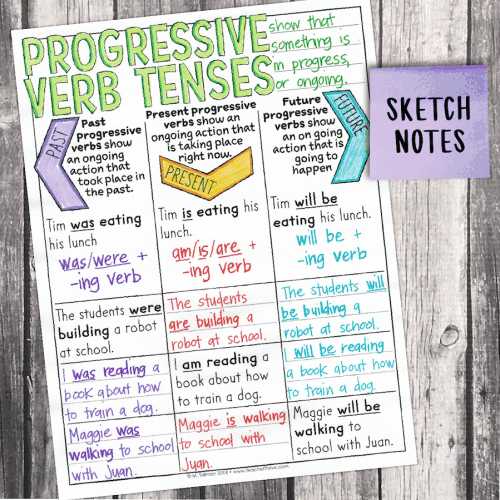 PROGRESSIVE
VERB TENSES
show that
something is
in progress,
or ongoing.
SKETCH
NOTES
PAST
Past
Progressive
verbs show
an ongoing
action that
took place in
the past.
Present progressive
verbs show an
ongoing action that
is taking place
right now.
PRESENT
Future
progressive
verbs show
an on going
action that is
going to
happen
FUTURE
Tim was eating
his lunch
was/were +
-ing verb
Tim is eating his
lunch.
am/is/are +
-ing verb
Tim will be
eating his lunch.
will be +
-ing verb
The students were
building a robot
at school.
The students
are building a
robot at school.
The students will
be building a
robot at school.
I was reading a
book about how
to train a dog.
I am reading a
book about how
to train a dog.
I will be reading
a book about how
to train a dog.
Maggie was
walking to school
with Juan.
Maggie is walking
to school with
Juan.
Maggie will be
walking to
school with Juan.